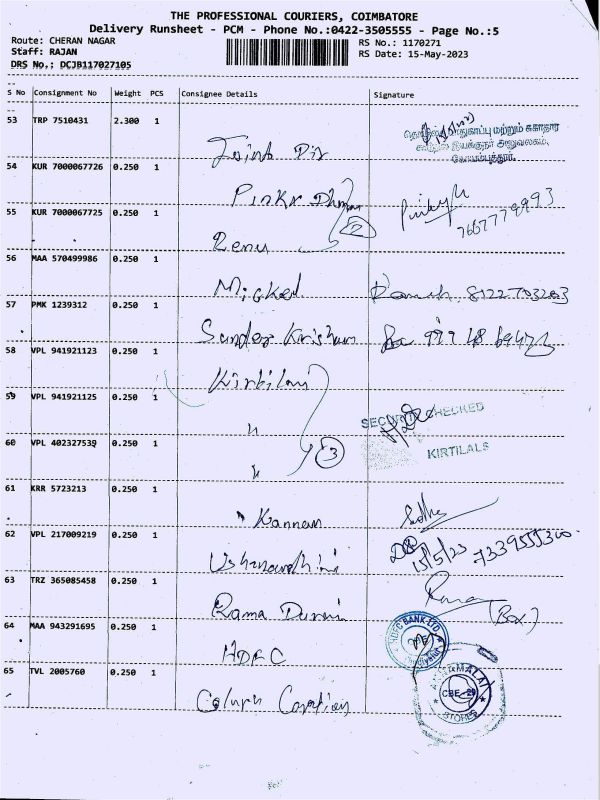 THE PROFESSIONAL COURIERS, COIMBATORE
Delivery Runsheet - PCM - Phone No.:0422-3505555 - Page No.:5
Route: CHERAN NAGAR
Staff: RAJAN
DRS No.: DCJB117027105
RS No.: 1170271
RS Date: 15-May-2023
S No Consignment No Weight PCS Consignee Details Signature
53 TRP 7510431 2.300 1 Joint Dir
மற்றும் சுகாதார
இயக்குநர் அலுவலகம்,
கோயம்புத்தூர்.
54 KUR 7000067726 0.250 1
55 KUR 7000067725 0.250 1 Renu 2
56 MAA 570499986 0.250 1
57 PMK 1239312 0.250 1
58 VPL 941921123 0.250 1 Kirtilan
59 VPL 941921125 0.250 1 "
SECURITY CHECKED
KIRTILALS
60 VPL 402327539 0.250 1 " 3
61 KRR 5723213 0.250 1 Kannan
62 VPL 217009219 0.250 1 15/5/23 7339555300
63 TRZ 365085458 0.250 1 Rama (Box)
64 MAA 943291695 0.250 1 HDFC
HDFC BANK LTD
65 TVL 2005760 0.250 1
ANNAMALAI
CBE-29
STORES